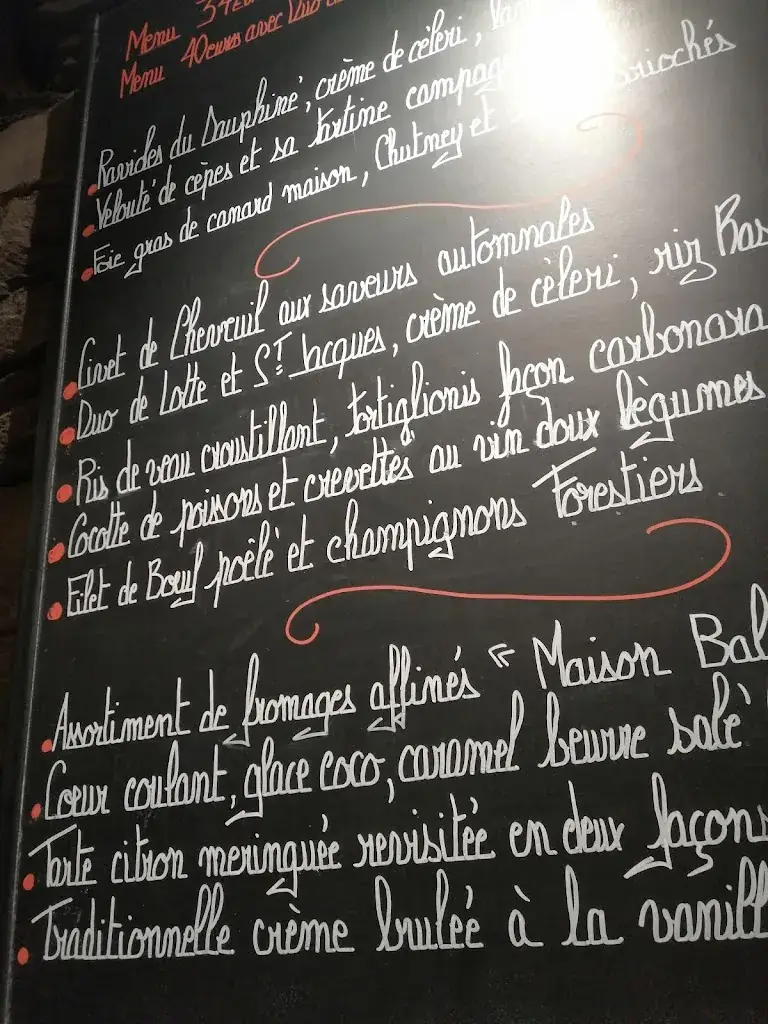 Menu 34
Menu 40euros avec Duo
Ravioles du Dauphiné, crème de cèleri,
Velouté de cèpes et sa tartine campag
Foie gras de canard maison, Chutney et briochés
Civet de Chevreuil aux saveurs automnales
Duo de Lotte et ST Jacques, crème de cèleri, riz Bas
Ris de veau croustillant, tortiglionis façon carbonara
Cocotte de poissons et crevettes au vin doux légumes
Filet de Boeuf poêlé et champignons Forestiers
Assortiment de fromages affinés " Maison Bal
Coeur coulant, glace coco, caramel beurre salé
Tarte citron meringuée revisitée en deux façons
Traditionnelle crème brulée à la vanill